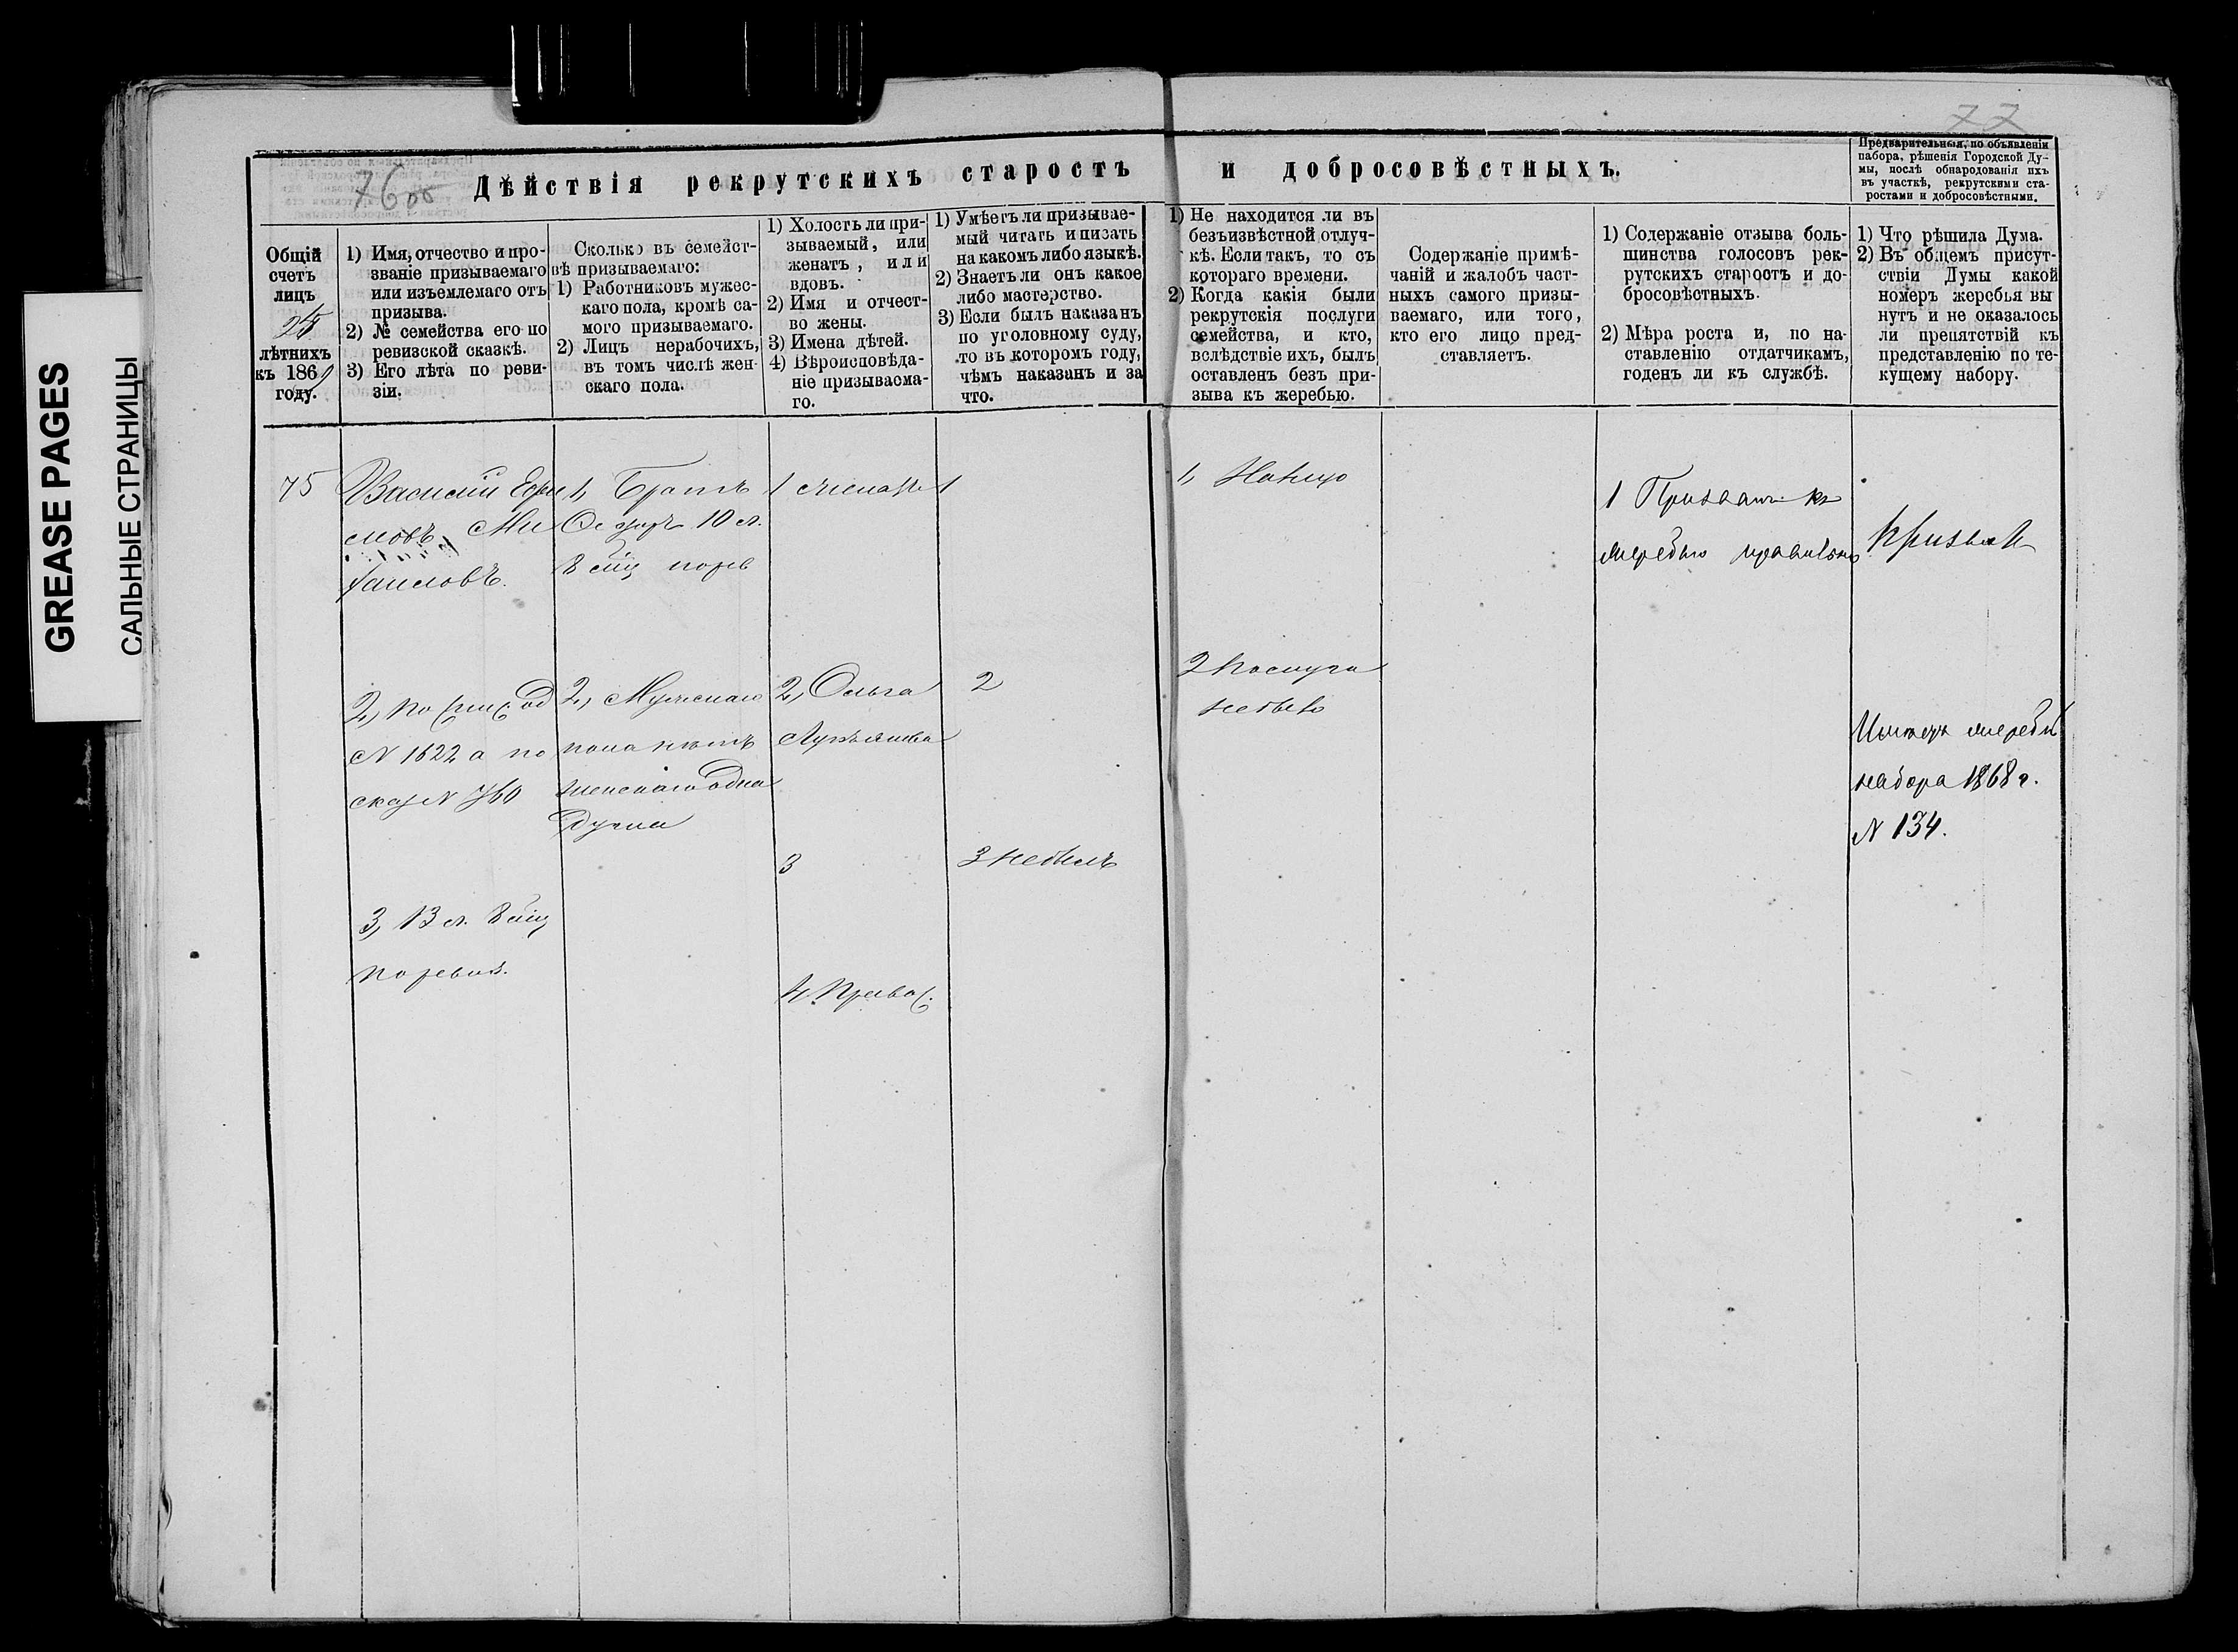 GREASE PAGES
САЛЬНЫЕ СТРАНИЦЫ
77
76 об
Дѣйствія рекрутскихъ старостъ и добросовѣстныхъ.
Предварительныя, по объявленіи
набора, рѣшенія Городской Ду-
мы, послѣ обнародованія ихъ
въ участкѣ, рекрутскими ста-
ростами и добросовѣстными.
Общій
счетъ
лицъ
лѣтнихъ
къ 186
году.
1) Имя, отчество и про-
званіе призываемаго
или изъемлемаго отъ
призыва.
2) № семейства его по
ревизской сказкѣ.
3) Его лѣта по реви-
зіи.
Сколько въ семейст-
вѣ призываемаго:
1) Работниковъ мужес-
каго пола, кромѣ са-
мого призываемаго.
2) Лицъ нерабочихъ,
въ томъ числѣ жен-
скаго пола.
1) Холостъ ли при-
зываемый, или
женатъ, или
вдовъ.
2) Имя и отчест-
во жены.
3) Имена дѣтей.
4) Вѣроисповѣда-
ніе призываема-
го.
1) Умѣетъ ли призывае-
мый читать и писать
на какомъ либо языкѣ.
2) Знаетъ ли онъ какое
либо мастерство.
3) Если былъ наказанъ
по уголовному суду,
то въ которомъ году,
чѣмъ наказанъ и за
что.
1) Не находится ли въ
безъизвѣстной отлуч-
кѣ. Если такъ, то съ
котораго времени.
2) Когда какія были
рекрутскія послуги
семейства, и кто,
вслѣдствіе ихъ, былъ
оставленъ безъ при-
зыва къ жеребью.
Содержаніе примѣ-
чаній и жалобъ част-
ныхъ самого призы-
ваемаго, или того,
кто его лицо пред-
ставляетъ.
1) Содержаніе отзыва боль-
шинства голосовъ рек-
рутскихъ старостъ и до-
бросовѣстныхъ.
2) Мѣра роста и, по на-
ставленію отдатчикамъ,
годенъ ли къ службѣ.
1) Что рѣшила Дума.
2) Въ общемъ присут-
ствіи Думы какой
номеръ жеребья вы
нутъ и не оказалось
ли препятствій къ
представленію по те-
кущему набору.
75
Василій Ефи
мовъ Ми
хаиловъ.
2, по
N 1622 а по
сказ N 760
3, 13 л.
по ревиз.
1, Братъ
10 л.
2, Мужскаго
пола нѣтъ
женскаго одна
душа
1 женатъ
2, Ольга
Лукьянова
3
4. Правос.
1
2
3 небылъ
1, Налицо
2 Послуги
небыло
1 Призвать къ
жребью правильно
Призвать
Имѣетъ жребій
набора 1868 г.
N 134.